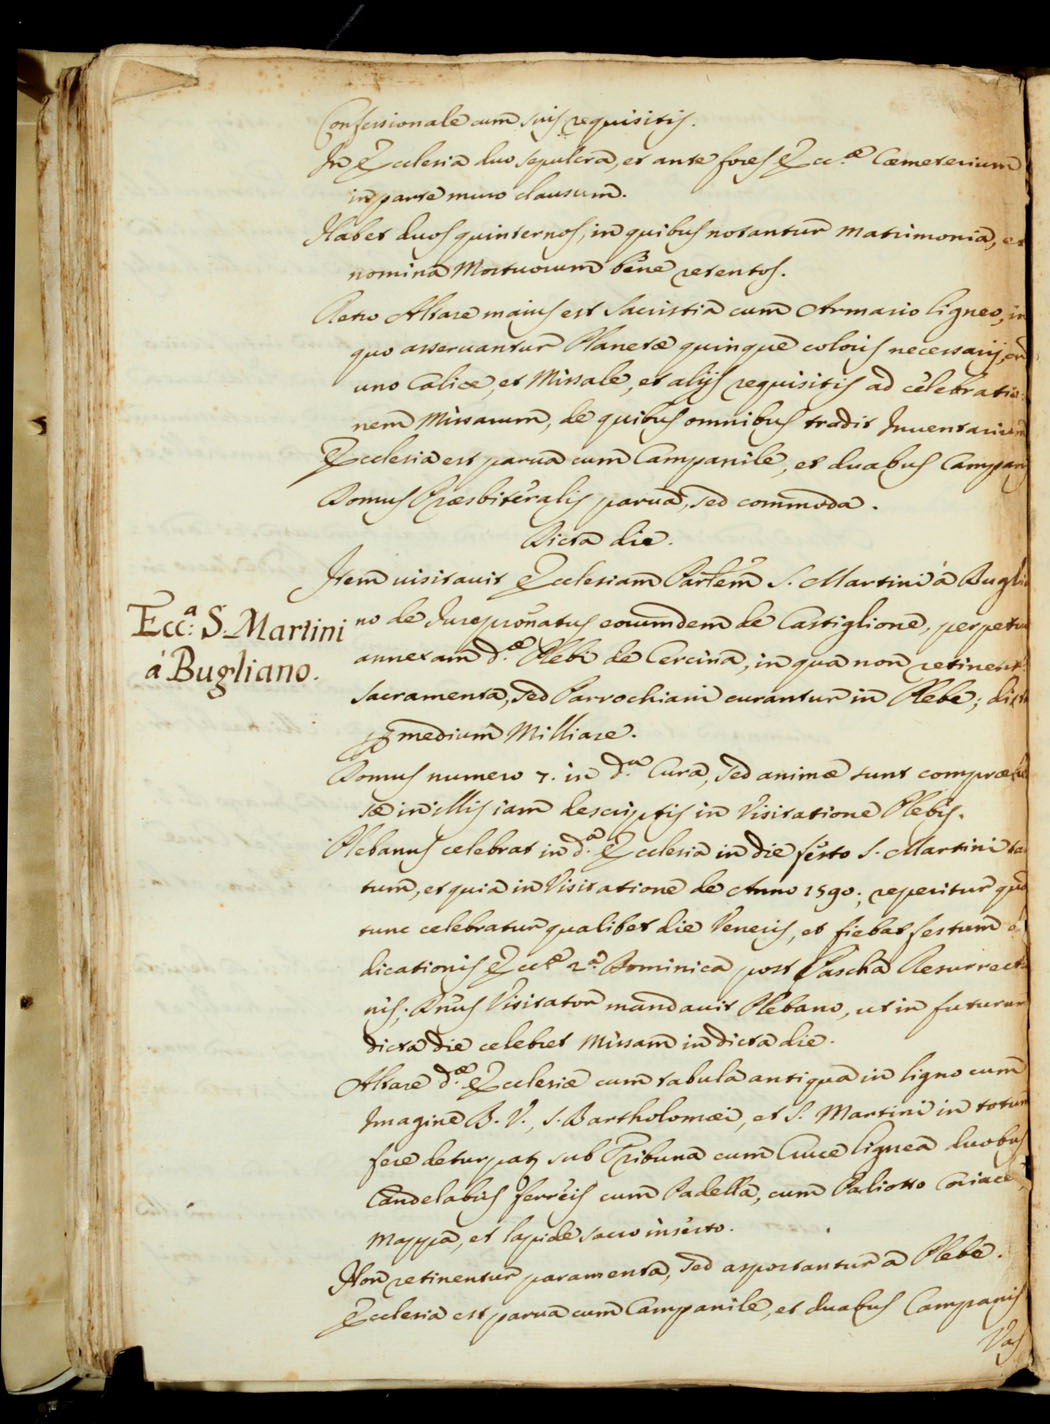 Confessionale cum suis requisitis.
In Ecclesia duo sepulcra, et ante fores Ecc.æ Cæmeterium
in parte muro clausum.
Habet duos quinternos, in quibus notantur Matrimonia, et
nomina Mortuorum bene retentos.
Retro Altare maius est Sacristia cum Armario ligneo, in
quo asseruantur Planetæ quinque coloris necessarij, cũ
uno Calice, et Missale, et alijs requisitis ad celebratio:
nem Missarum, de quibus omnibus tradit Inuentarium
Ecclesia est parua cum Campanile, et duabus Campanis
Domus Præsbiteralis parua, sed commoda.
Dicta die.
Item uisitauit Ecclesiam Parlem S. Martini à Buglia
Ecc:a S. Martini
à Bugliano.
no de Iurepronatus eorumdem de Castiglione, perpetuo
annexam d.æ Plebi de Cercina, in qua non retinent.
sacramenta, sed Parrochiani curantur in Plebe; dista
medium Milliare.
Domus numero 7. in d.a Cura, sed animæ sunt compræhẽ
sæ in illis iam descriptis in Visitatione Plebis.
Plebanus celebrat in d.a Ecclesia in die festo S. Martini tan
tum, et quia in Visitatione de Anno 1590. reperitur quod
tunc celebratur qualibet die Veneris, et fiebat festum de
dicationis Eccl.æ 2.a Dominica post Pascha Resurrectio
nis; Dñus Visitator mandauit Plebano, ut in futurum
dicta die celebret Missam in dicta die.
Altare d.æ Ecclesiæ cum tabula antiqua in ligno cum
Imagine B. V., S. Bartholomæi, et S. Martini in totum
fere deturpat, sub Tribuna cum Cruce lignea duobus
Candelabris ferreis cum Padella, cum Paliotto Coriaceo,
Mappa, et lapide sacro inserto.
Non retinentur paramenta, sed asportantur a Plebe.
Ecclesia est parua cum Campanile, et duabus Campanis
Vas